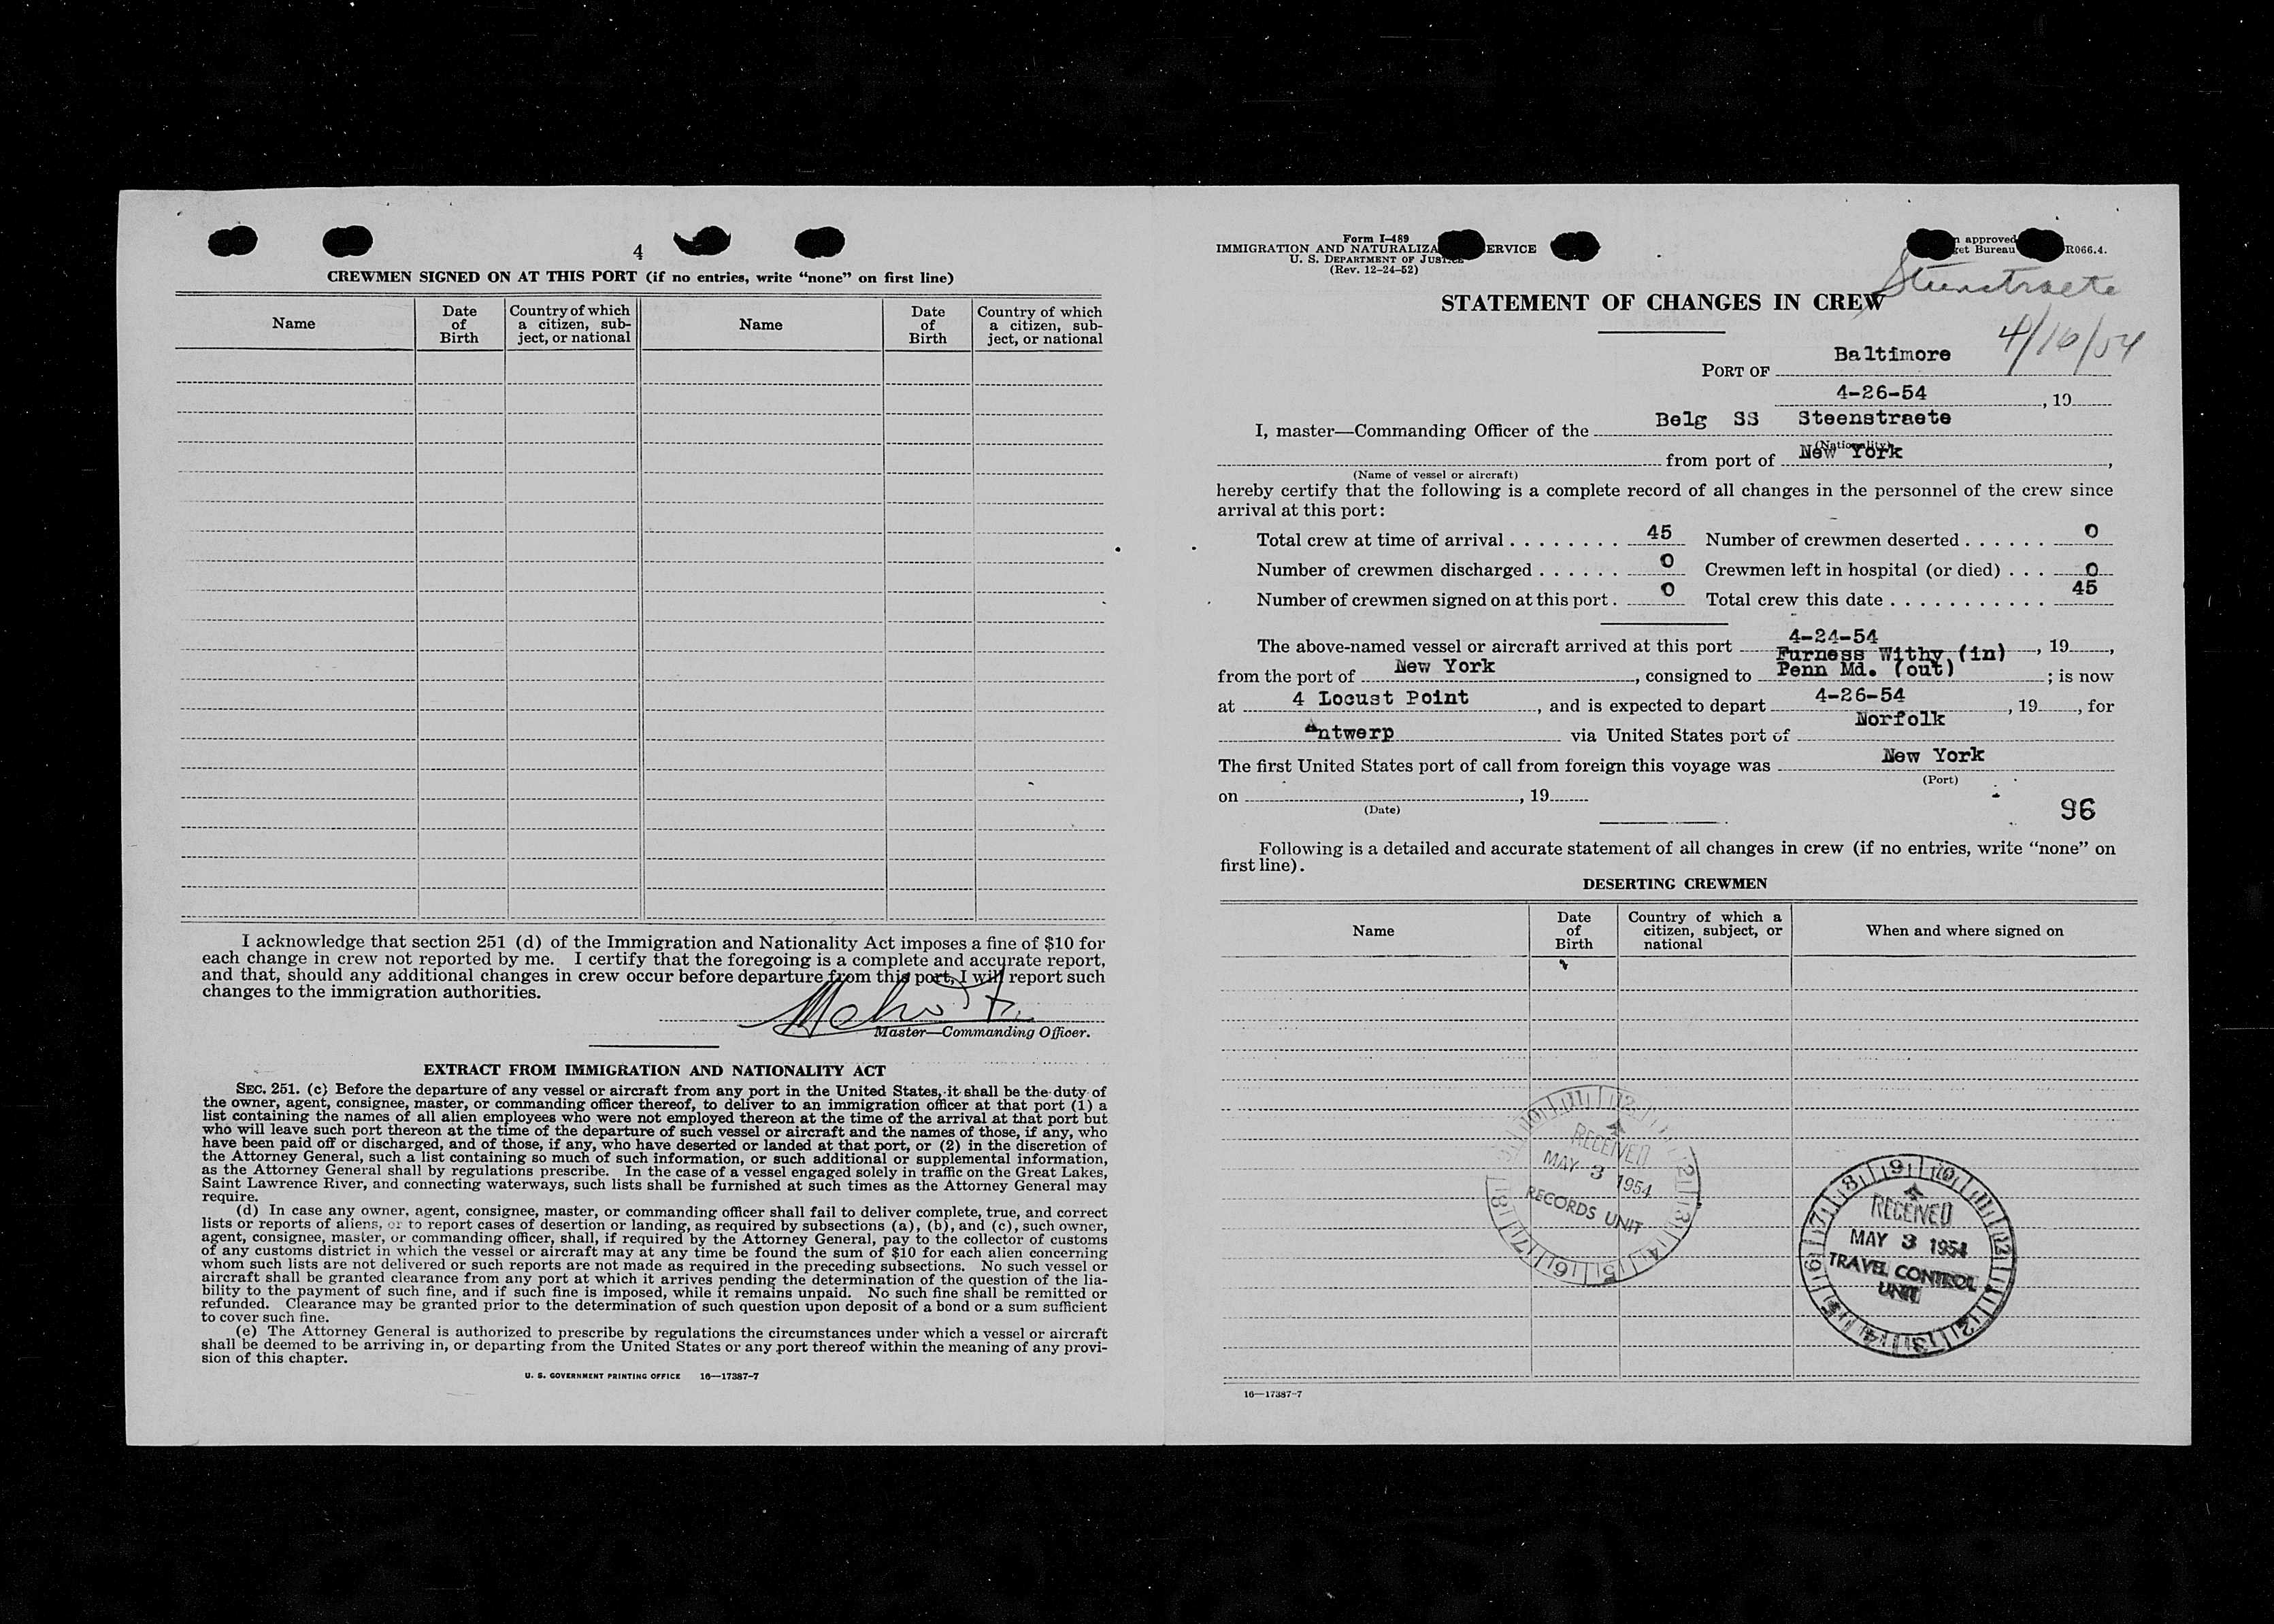 4
CREWMEN SIGNED ON AT THIS PORT (if no entries, write “none” on first line)
Name
Date of Birth
Country of which a citizen, sub-ject, or national
Name
Date of Birth
Country of which a citizen, sub-ject, or national
I acknowledge that section 251 (d) of the Immigration and Nationality Act imposes a fine of $10 for
each change in crew not reported by me. I certify that the foregoing is a complete and accurate report,
and that, should any additional changes in crew occur before departure from this port, I will report such
changes to the immigration authorities.
Master—Commanding Officer.
EXTRACT FROM IMMIGRATION AND NATIONALITY ACT
SEC. 251. (c) Before the departure of any vessel or aircraft from any port in the United States, it shall be the duty of
the owner, agent, consignee, master, or commanding officer thereof, to deliver to an immigration officer at that port (1) a
list containing the names of all alien employees who were not employed thereon at the time of the arrival at that port but
who will leave such port thereon at the time of the departure of such vessel or aircraft and the names of those, if any, who
have been paid off or discharged, and of those, if any, who have deserted or landed at that port, or (2) in the discretion of
the Attorney General, such a list containing so much of such information, or such additional or supplemental information,
as the Attorney General shall by regulations prescribe. In the case of a vessel engaged solely in traffic on the Great Lakes,
Saint Lawrence River, and connecting waterways, such lists shall be furnished at such times as the Attorney General may
require.
(d) In case any owner, agent, consignee, master, or commanding officer shall fail to deliver complete, true, and correct
lists or reports of aliens, or to report cases of desertion or landing, as required by subsections (a), (b), and (c), such owner,
agent, consignee, master, or commanding officer, shall, if required by the Attorney General, pay to the collector of customs
of any customs district in which the vessel or aircraft may at any time be found the sum of $10 for each alien concerning
whom such lists are not delivered or such reports are not made as required in the preceding subsections. No such vessel or
aircraft shall be granted clearance from any port at which it arrives pending the determination of the question of the lia-
bility to the payment of such fine, and if such fine is imposed, while it remains unpaid. No such fine shall be remitted or
refunded. Clearance may be granted prior to the determination of such question upon deposit of a bond or a sum sufficient
to cover such fine.
(e) The Attorney General is authorized to prescribe by regulations the circumstances under which a vessel or aircraft
shall be deemed to be arriving in, or departing from the United States or any port thereof within the meaning of any provi-
sion of this chapter.
U. S. GOVERNMENT PRINTING OFFICE 16—17387-7
Form I-489
IMMIGRATION AND NATURALIZA ERVICE
U. S. DEPARTMENT OF JUSTICE
(Rev. 12-24-52)
approved
et Bureau R066.4.
Steenstraete
4/16/54
STATEMENT OF CHANGES IN CREW
PORT OF Baltimore
4-26-54, 19
I, master—Commanding Officer of the Belg SS Steenstraete
(Nationality)
from port of New York,
(Name of vessel or aircraft)
hereby certify that the following is a complete record of all changes in the personnel of the crew since
arrival at this port:
Total crew at time of arrival . . . . . . . . 45 Number of crewmen deserted . . . . . . 0
Number of crewmen discharged . . . . . . 0 Crewmen left in hospital (or died) . . . 0
Number of crewmen signed on at this port . 0 Total crew this date . . . . . . . . . . . 45
The above-named vessel or aircraft arrived at this port 4-24-54, 19,
Furness Withy (in)
from the port of New York, consigned to Penn Md. (out); is now
at 4 Locust Point, and is expected to depart 4-26-54, 19, for
Antwerp via United States port of Norfolk
The first United States port of call from foreign this voyage was New York
(Port)
on , 19
(Date)
96
Following is a detailed and accurate statement of all changes in crew (if no entries, write “none” on
first line).
DESERTING CREWMEN
Name
Date of Birth
Country of which a citizen, subject, or national
When and where signed on
RECEIVED
MAY 3 1954
RECORDS UNIT
RECEIVED
MAY 3 1954
TRAVEL CONTROL
UNIT
16—17387-7